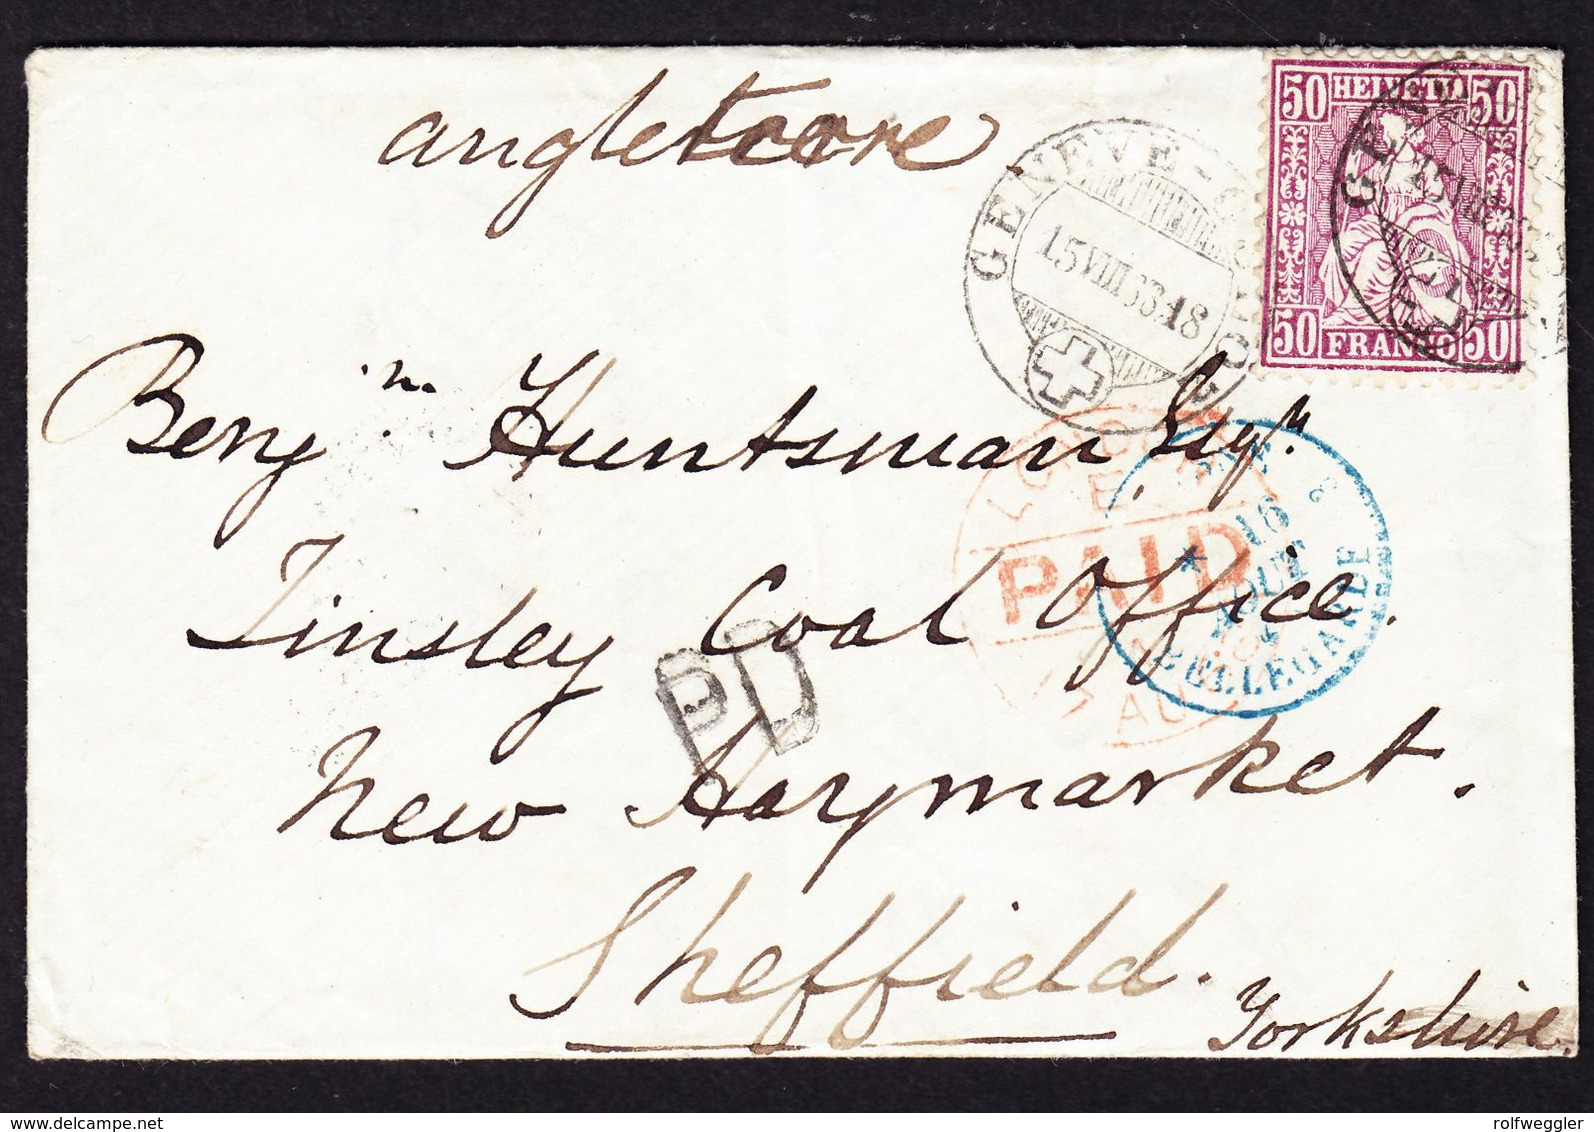 angleterre
50 HELVETIA 50
50 FRANCO 50
GENEVE
15 VIII 68 18
Benjn Huntsman Esqr
Tinsley Coal Office.
New Haymarket.
Sheffield.
Yorkshire.
PD
LONDON
E
PAID
AU
2
16
AOUT
BELLEGARDE
rolfweggler